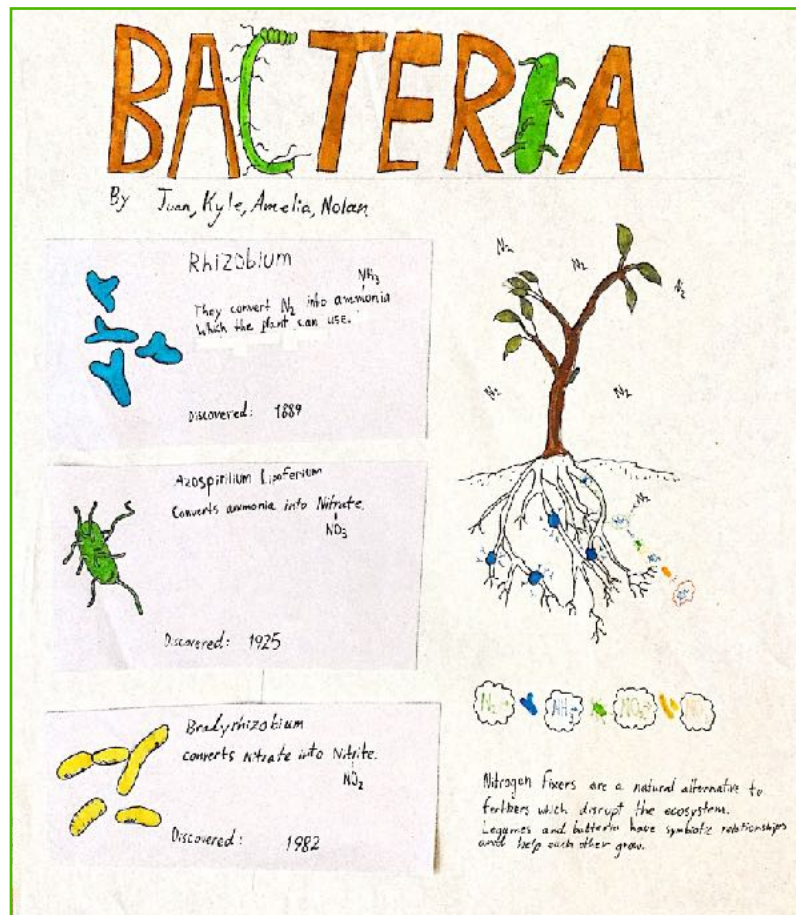 BACTERIA
By Juan, Kyle, Amelia, Nolan
Rhizobium
NH3
They convert N2 into ammonia
which the plant can use.
Discovered: 1889
Azospirilium Lipoferium
Converts ammonia into Nitrate.
NO3
Discovered: 1925
Bradyrhizobium
converts Nitrate into Nitrite.
NO2
Discovered: 1982
N2
N2
N2
N2
N2
N2
N2 NH3 NO3
Nitrogen Fixers are a natural alternative to
fertilizers which disrupt the ecosystem.
Legumes and bacteria have symbiotic relationships
and help each other grow.